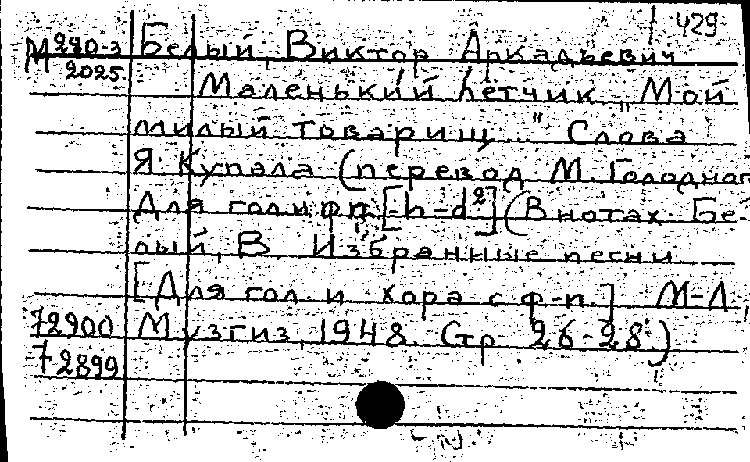 429
М 280-3 Белый, Виктор Аркадьевич
2025
Маленький летчик „Мой
милый товарищ..." Слова
Я. Купала (перевод М. Голодног
Для гол. и ф-п. [h-d²] (В нотах: Бе-
лый, В. Избранные песни
[Для гол. и хора с ф-п.] М-Л,
72900 Музгиз, 1948. Стр. 26-28.)
72899